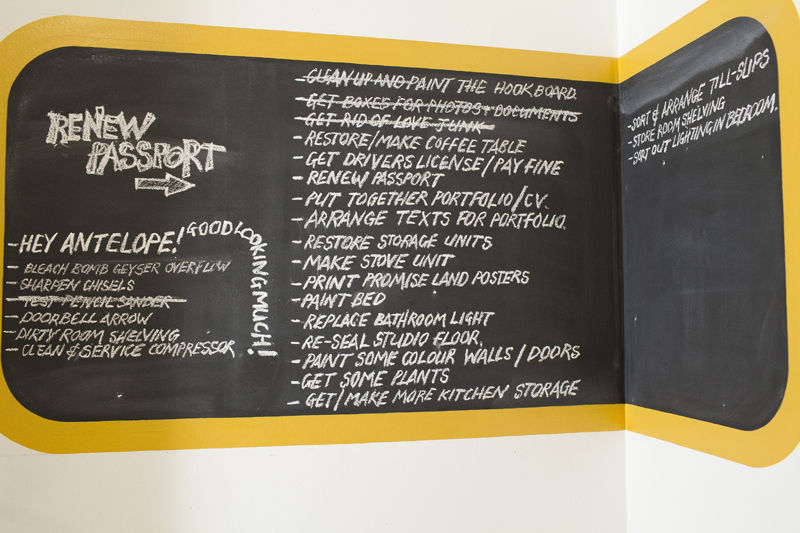 RENEW
PASSPORT
- HEY ANTELOPE! GOOD LOOKING MUCH!
- BLEACH BOMB GEYSER OVERFLOW
- SHARPEN CHISELS
- TEST PENCIL SANDER
- DOORBELL ARROW
- DIRTY ROOM SHELVING
- CLEAN & SERVICE COMPRESSOR
- CLEAN UP AND PAINT THE HOOKBOARD.
- GET BOXES FOR PHOTOS + DOCUMENTS
- GET RID OF LOVE JUNK
- RESTORE/MAKE COFFEE TABLE
- GET DRIVERS LICENSE/PAY FINE
- RENEW PASSPORT
- PUT TOGETHER PORTFOLIO/CV.
- ARRANGE TEXTS FOR PORTFOLIO.
- RESTORE STORAGE UNITS
- MAKE STOVE UNIT
- PRINT PROMISE LAND POSTERS
- PAINT BED
- REPLACE BATHROOM LIGHT
- RE-SEAL STUDIO FLOOR.
- PAINT SOME COLOUR WALLS / DOORS
- GET SOME PLANTS
- GET/MAKE MORE KITCHEN STORAGE
- SORT & ARRANGE TILL-SLIPS
- STORE ROOM SHELVING
- SORT OUT LIGHTING IN BEDROOM.